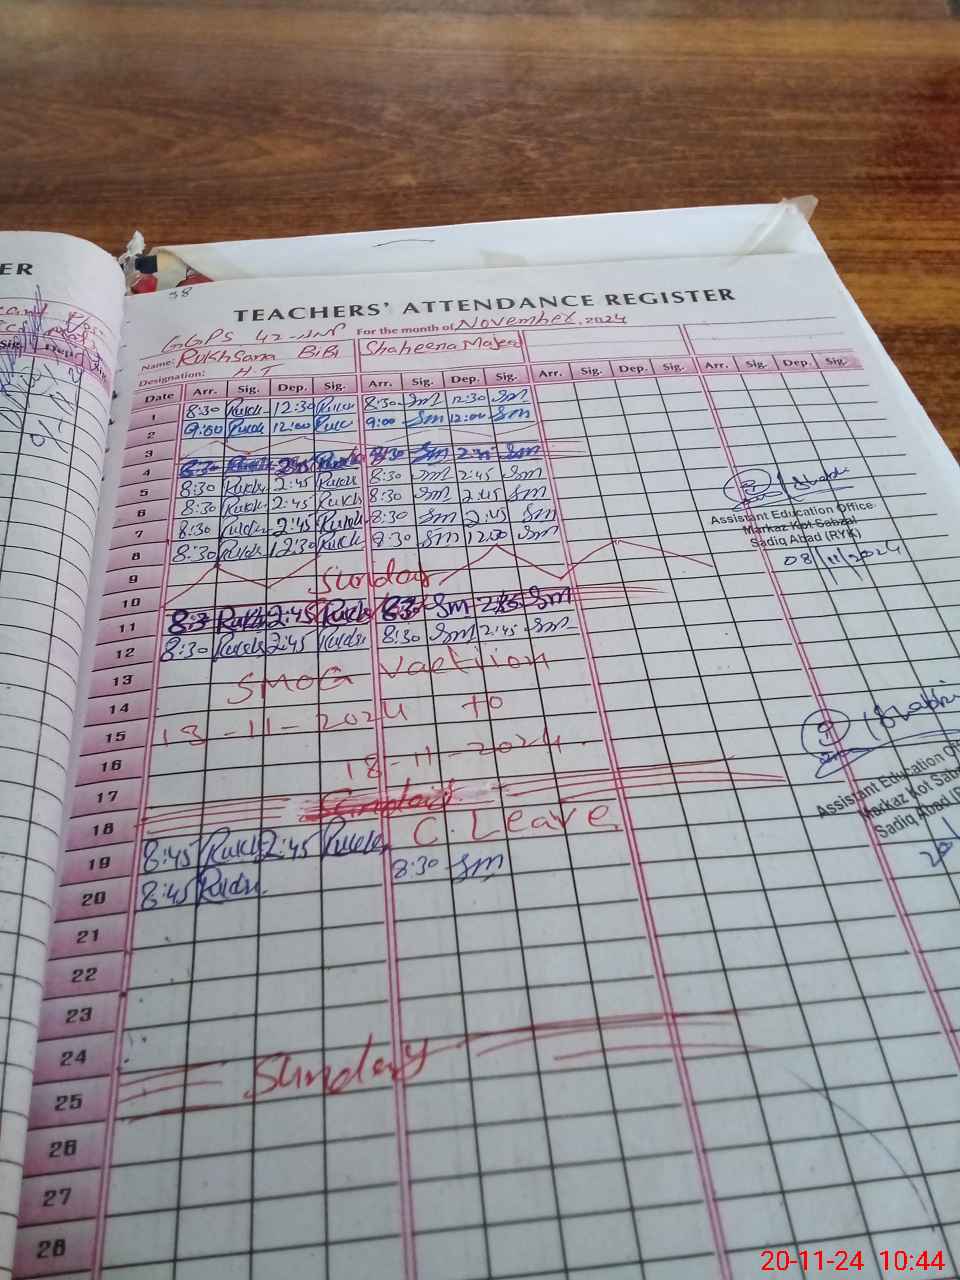 ER
38
TEACHERS' ATTENDANCE REGISTER
GGPS 42-NP For the month of November, 2024
Name: Rukhsana BiBi Shaheena Majeed
Designation: H.T
Date Arr. Sig. Dep. Sig. Arr. Sig. Dep. Sig. Arr. Sig. Dep. Sig. Arr. Sig. Dep. Sig.
1 8:30 Rukh 12:30 Rukh 8:30 SM 12:30 SM
2 9:00 Rukh 12:00 Rukh 9:00 SM 12:00 SM
3
4 8:30 Rukh 2:45 Rukh 8:30 SM 2:45 SM
5 8:30 Rukh 2:45 Rukh 8:30 SM 2:45 SM
6 8:30 Rukh 2:45 Rukh 8:30 SM 2:45 SM
7 8:30 Rukh 2:45 Rukh 8:30 SM 2:45 SM
8 8:30 Rukh 12:30 Rukh 8:30 SM 12:00 SM
Assistant Education Officer
Markaz Kot Sabzal
Sadiq Abad (RYK)
08/11/2024
9
10 Sunday
11 8:3 Rukh 2:45 Rukh 8:30 SM 2:45 SM
12 8:30 Rukh 2:45 Rukh 8:30 SM 2:45 SM
13 SMOG Vaction
14
15 13-11-2024 to
16 18-11-2024.
17
18
19 8:45 Rukh 2:45 Rukh C. Leave
20 8:45 Rukh 8:30 SM
Assistant Education Offi
Markaz Kot Sab
Sadiq Abad (R
20
21
22
23
24 Sunday
25
26
27
28
20-11-24 10:44